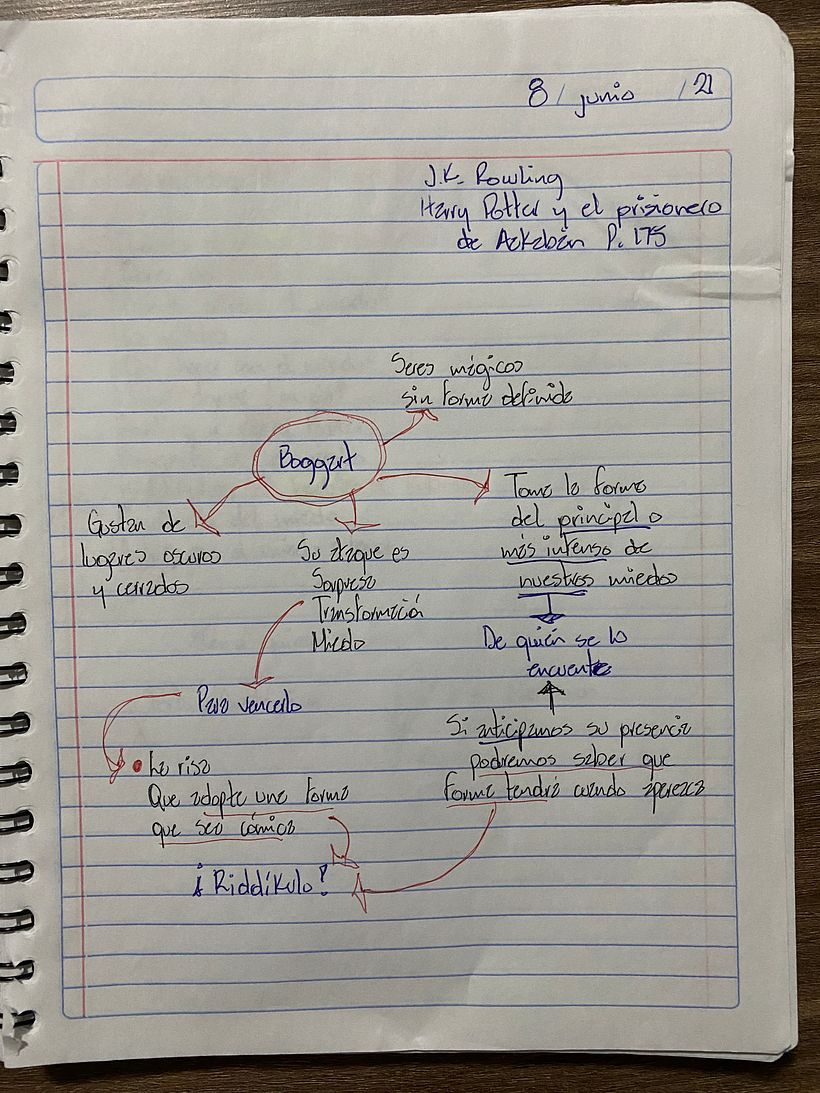 8 / junio / 21
J.K. Rowling
Harry Potter y el prisionero
de Azkabán P. 175
Seres mágicos
sin forma definida
Boggart
Gustan de
lugares oscuros
y cerrados
Su ataque es
Sorpresa
Transformación
Miedo
Toma la forma
del principal o
más intenso de
nuestros miedos
De quién se lo
encuentre
Para vencerlo
Si anticipamos su presencia
podremos saber que
forma tendrá cuando aparezca
• La risa
Que adopte una forma
que sea cómica
¡Riddíkulo!